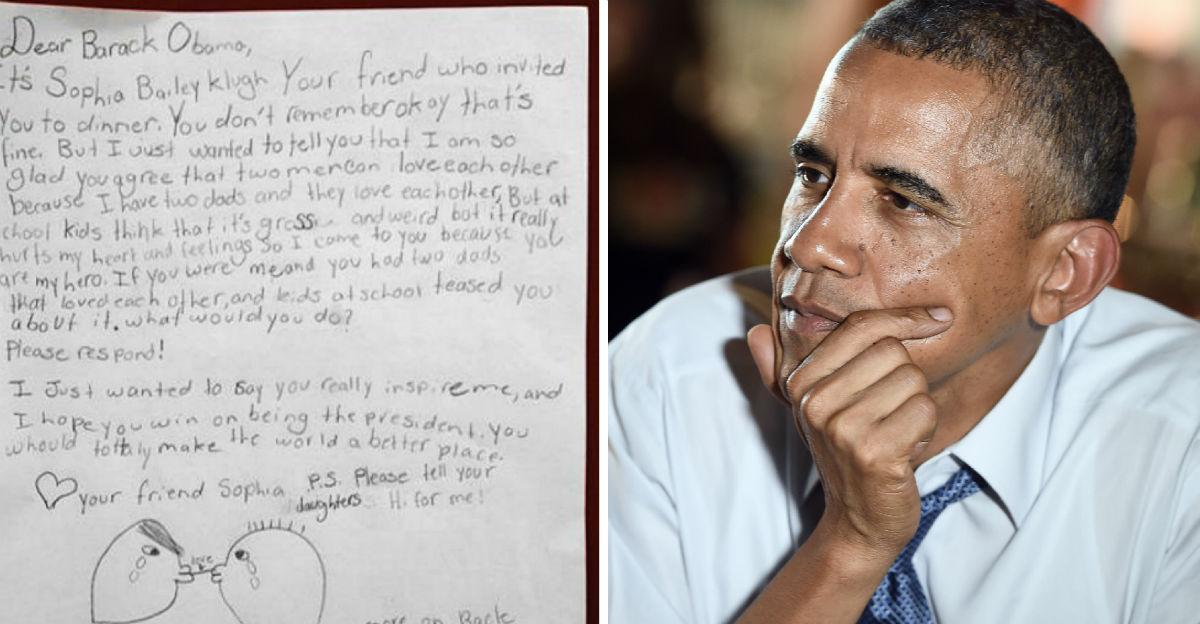 Dear Barack Obama,
It's Sophia Bailey Klugh Your friend who invited
You to dinner. You don't remember okay that's
fine. But I Just wanted to tell you that I am so
glad you agree that two men can love each other
because I have two dads and they love each other, But at
school kids think that it's gross and weird but it really
hurts my heart and feelings So I come to you because you
are my hero. If you were me and you had two dads
that loved each other, and kids at school teased you
about it. what would you do?
Please respond!
I Just wanted to say you really inspire me, and
I hope you win on being the president. you
whould tottaly make the world a better place.
your friend Sophia P.S. Please tell your
daughters Hi for me!
love
more on Back